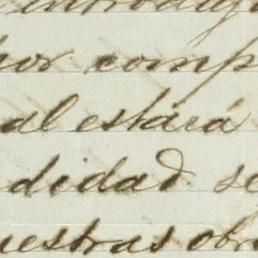 por comp
al estará
didad se
uestras obr